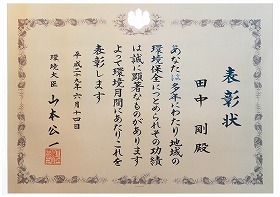 表彰状
田中 剛 殿
あなたは多年にわたり地域の
環境保全につとめられその功績
は誠に顕著なものがあります
よって環境月間にあたりこれを
表彰します
平成二十九年六月十四日
環境大臣 山本公一